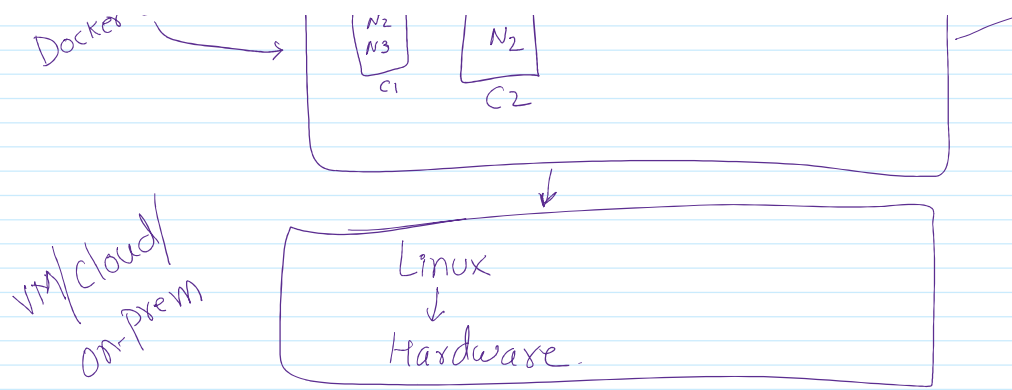 Docker
N2
N3
C1
N2
C2
VM/cloud/
on-prem
Linux
Hardware.